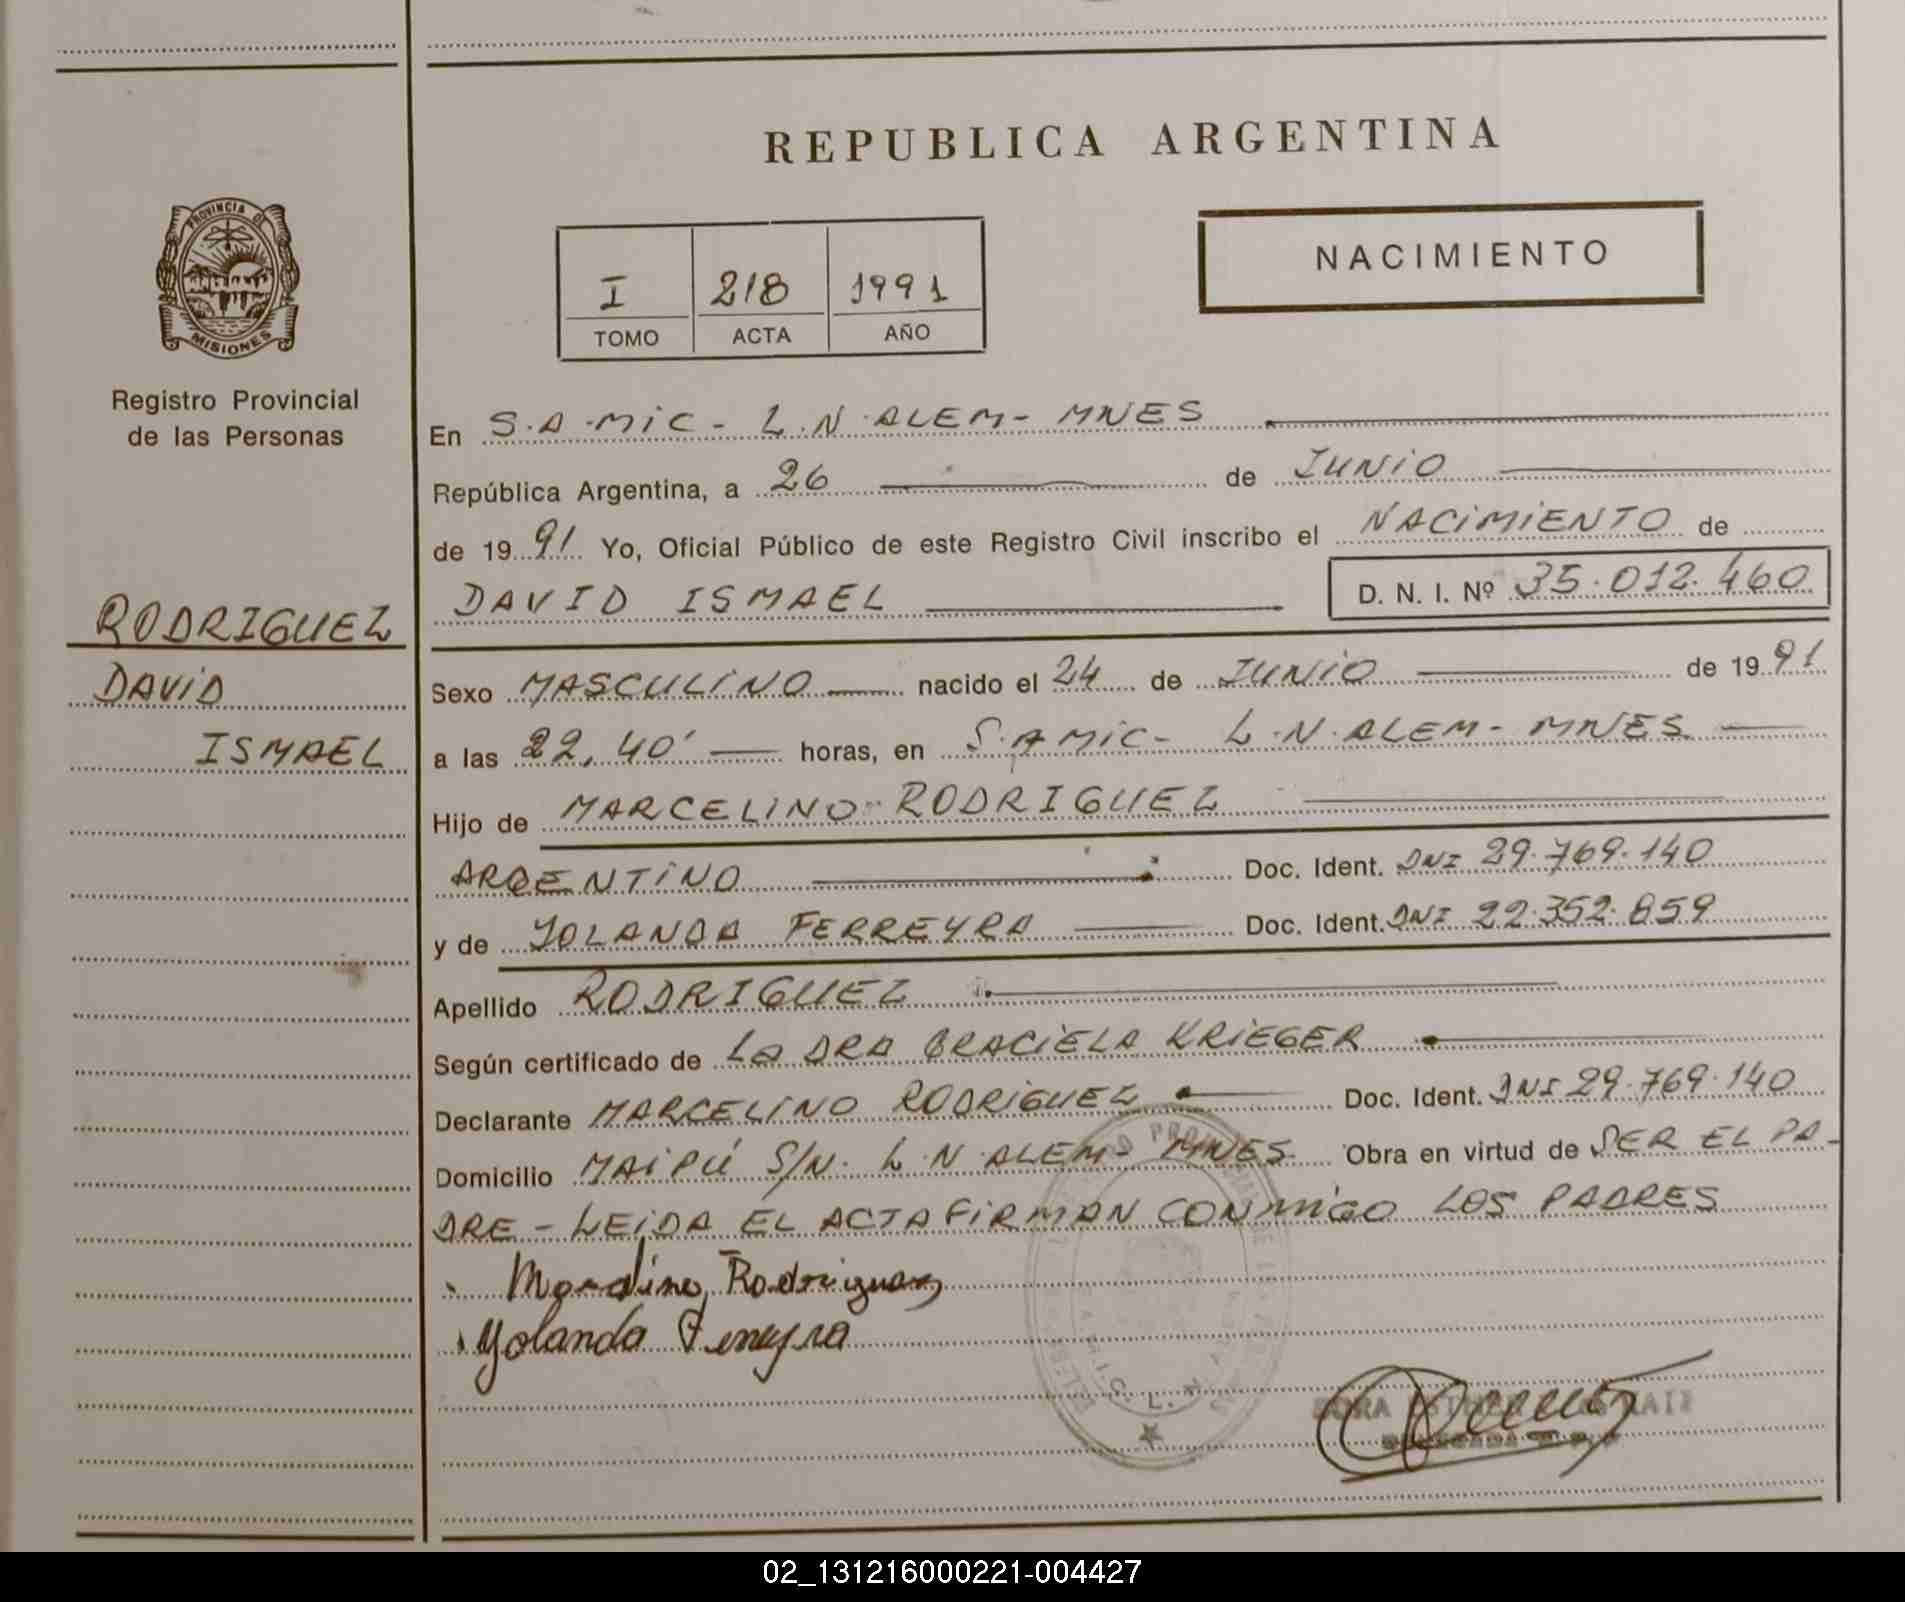 REPUBLICA ARGENTINA
PROVINCIA DE
MISIONES
Registro Provincial
de las Personas
I 218 1991
TOMO ACTA AÑO
NACIMIENTO
En S.A.MiC - L.N. ALEM - MNES
República Argentina, a 26 de JUNiO
de 1991 Yo, Oficial Público de este Registro Civil inscribo el NACiMiENTO de
DAVID ISMAEL D. N. I. Nº 35.012.460
RODRIGUEZ
DAViD
ISMAEL
Sexo MASCULiNO nacido el 24 de JUNiO de 1991
a las 22,40' horas, en S.A MiC - L.N. ALEM - MNES
Hijo de MARCELINO RODRIGUEZ
ARGENTiNO Doc. Ident. DNI 29.769.140
y de YOLANDA FERREYRA Doc. Ident. DNI 22.352.859
Apellido RODRIGUEZ
Según certificado de La DRA GRACiELA KRiEGER
Declarante MARCELINO RODRiGUEZ Doc. Ident. DNI 29.769.140
Domicilio MAiPÚ S/N. L.N ALEM - MNES Obra en virtud de SER EL PA-
DRE - LEiDA EL ACTA FiRMAN CONMiGO LOS PADRES
Marcelino Rodriguez
Yolanda Ferreyra
02_131216000221-004427